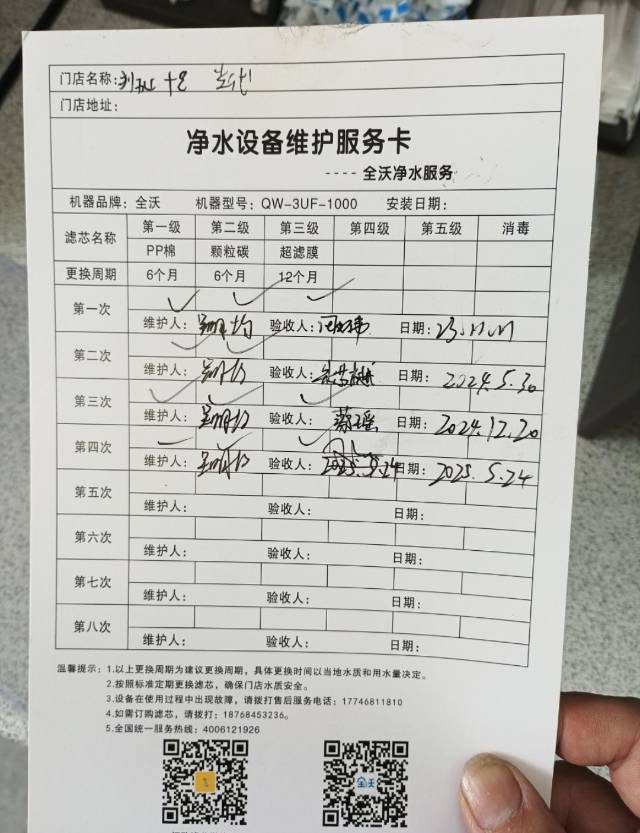 门店名称:
门店地址:
净水设备维护服务卡
---- 全沃净水服务
机器品牌: 全沃 机器型号: QW-3UF-1000 安装日期:
滤芯名称 第一级 第二级 第三级 第四级 第五级 消毒
PP棉 颗粒碳 超滤膜
更换周期 6个月 6个月 12个月
第一次
维护人: 验收人: 日期:
第二次
维护人: 验收人: 日期: 2024.5.30
第三次
维护人: 验收人: 蔡瑶 日期: 2024.12.20
第四次
维护人: 验收人: 日期: 2025.5.24
第五次
维护人: 验收人: 日期:
第六次
维护人: 验收人: 日期:
第七次
维护人: 验收人: 日期:
第八次
维护人: 验收人: 日期:
温馨提示: 1.以上更换周期为建议更换周期,具体更换时间以当地水质和用水量决定。
2.按照标准定期更换滤芯,确保门店水质安全。
3.设备在使用过程中出现故障,请拨打售后服务电话: 17746811810
4.如需订购滤芯,请拨打: 18768453236。
5.全国统一服务热线: 4006121926
全沃